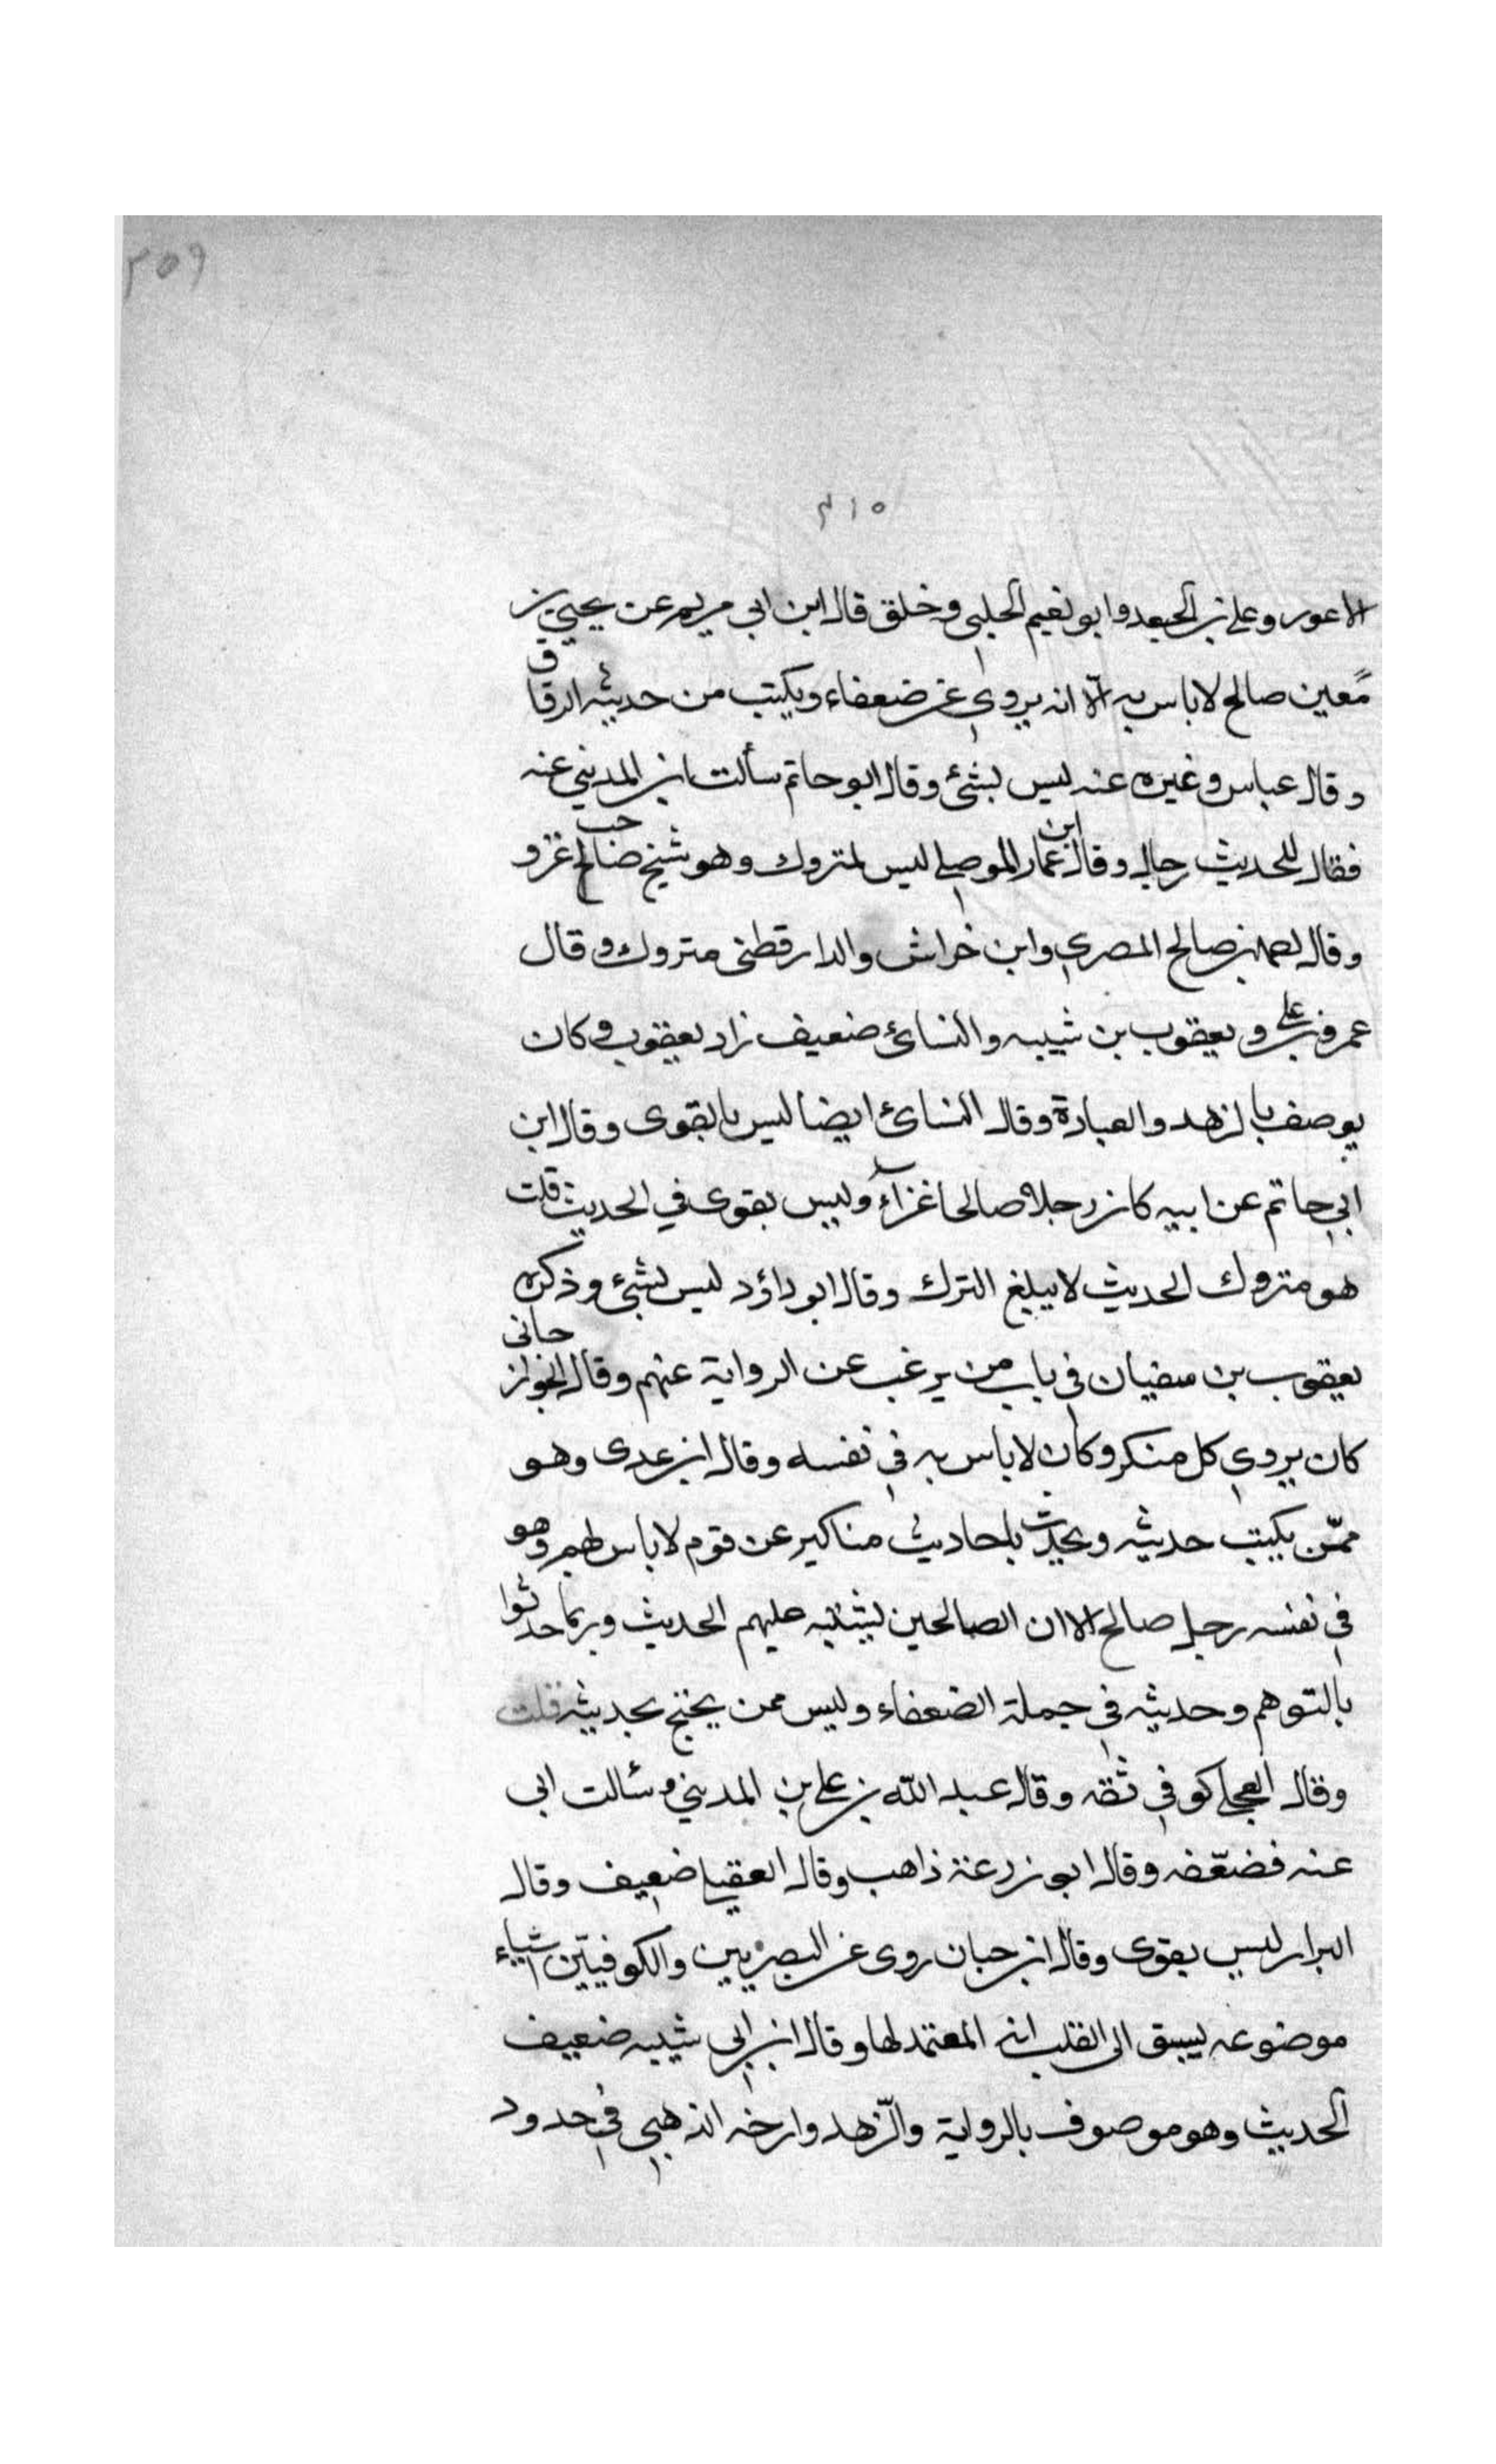 ٣٥٩
٣١٥
الاعور وعلي بن الجعد وابو نعيم الحلبي وخلق قال ابن ابي مريم عن يحيى بن
معين صالح لا باس به الا انه يروي عن ضعفاء ويكتب من حديثه الرقاق
وقال عباس وغيره عنه ليس بشئ وقال ابو حاتم سألت ابن المديني عنه
فقال للحديث رجال وقال ابن عمار الموصلي ليس بمتروك وهو شيخ صاحب غزو
وقال احمد بن صالح المصري وابن خراش والدارقطني متروك وقال
عمرو بن علي ويعقوب بن شيبه والنسائ ضعيف زاد يعقوب وكان
يوصف بالزهد والعبادة وقال النسائ ايضا ليس بالقوى وقال ابن
ابي حاتم عن ابيه كان رجلا صالحا غزاء وليس بقوى في الحديث قلت
هو متروك الحديث لا يبلغ الترك وقال ابو داؤد ليس بشئ وذكره
يعقوب بن سفيان في باب من يرغب عن الرواية عنهم وقال الجوازجاني
كان يروي كل منكر وكان لا باس به في نفسه وقال ابن عدى وهو
ممّن يكتب حديثه ويحدّث باحاديث مناكير عن قوم لا باس بهم وهو
في نفسه رجل صالح الا ان الصالحين يشتبه عليهم الحديث وربما حدثوا
بالتوهم وحديثه في جملة الضعفاء وليس ممن يحتج بحديثه قلت
وقال العجلي كوفي ثقه وقال عبد الله بن علي بن المديني وسالت ابي
عنه فضعّفه وقال ابو زرعة ذاهب وقال العقيلي ضعيف وقال
البزار ليس بقوى وقال ابن حبان روى عن البصريين والكوفيّين اشياء
موضوعه يسبق الى القلب انه المعتمد لها وقال ابن ابي شيبه ضعيف
الحديث وهو موصوف بالرواية والزّهد وارخه الذهبي في حدود